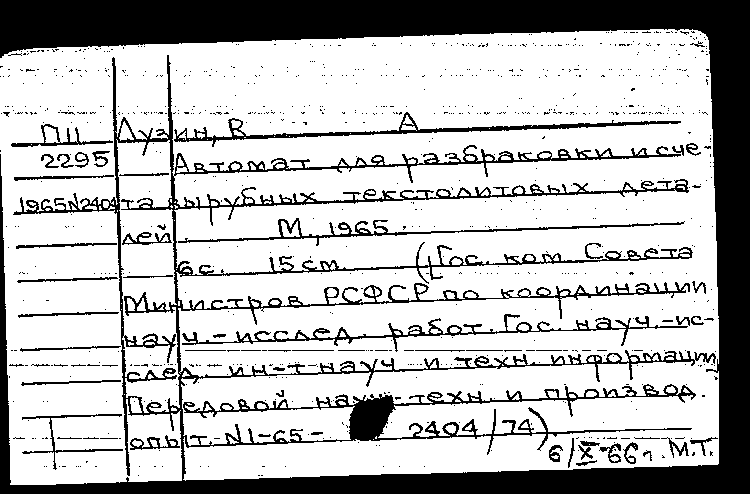 ПII Лузин, В А
2295 Автомат для разбраковки и сче-
1965N2404 та вырубных текстолитовых дета-
лей. М., 1965.
6 с. 15 см. ([Гос. ком. Совета
Министров РСФСР по координации
науч.-исслед. работ. Гос. науч.-ис-
след. ин-т науч. и техн. информации
Передовой науч.-техн. и производ.
опыт. N1-65- 2404/74)
6/X-66г. М.Т.